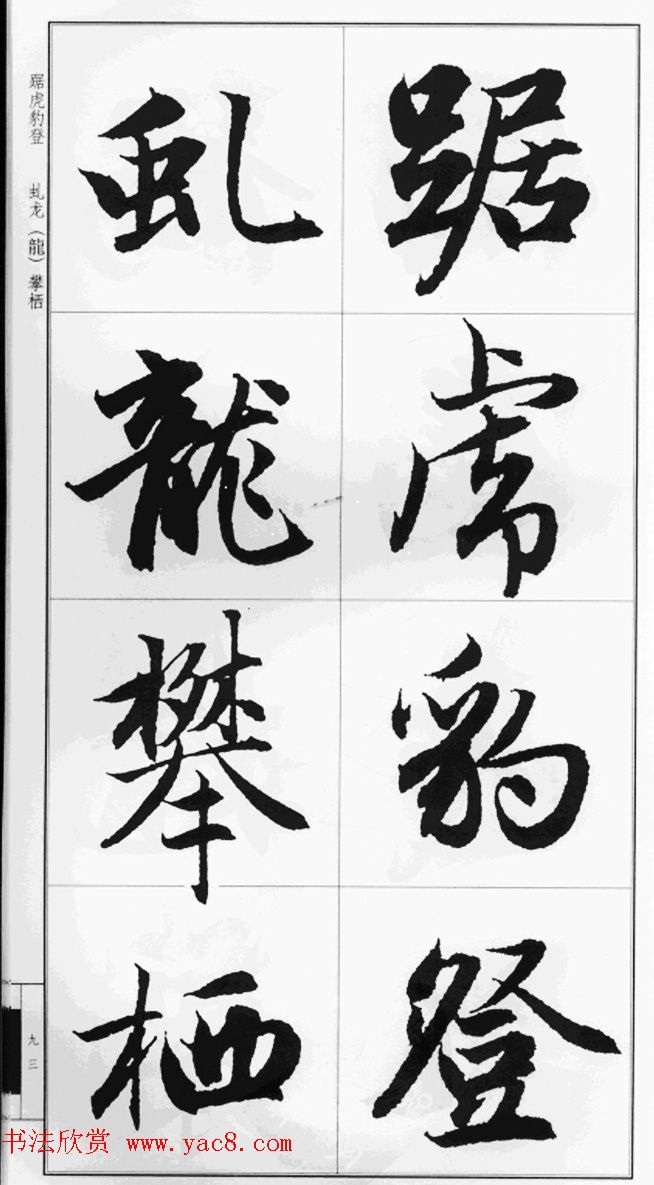 踞虎豹登
虬龍攀栖
踞虎豹登 虬龙（龍）攀栖
九三
书法欣赏 www.yac8.com